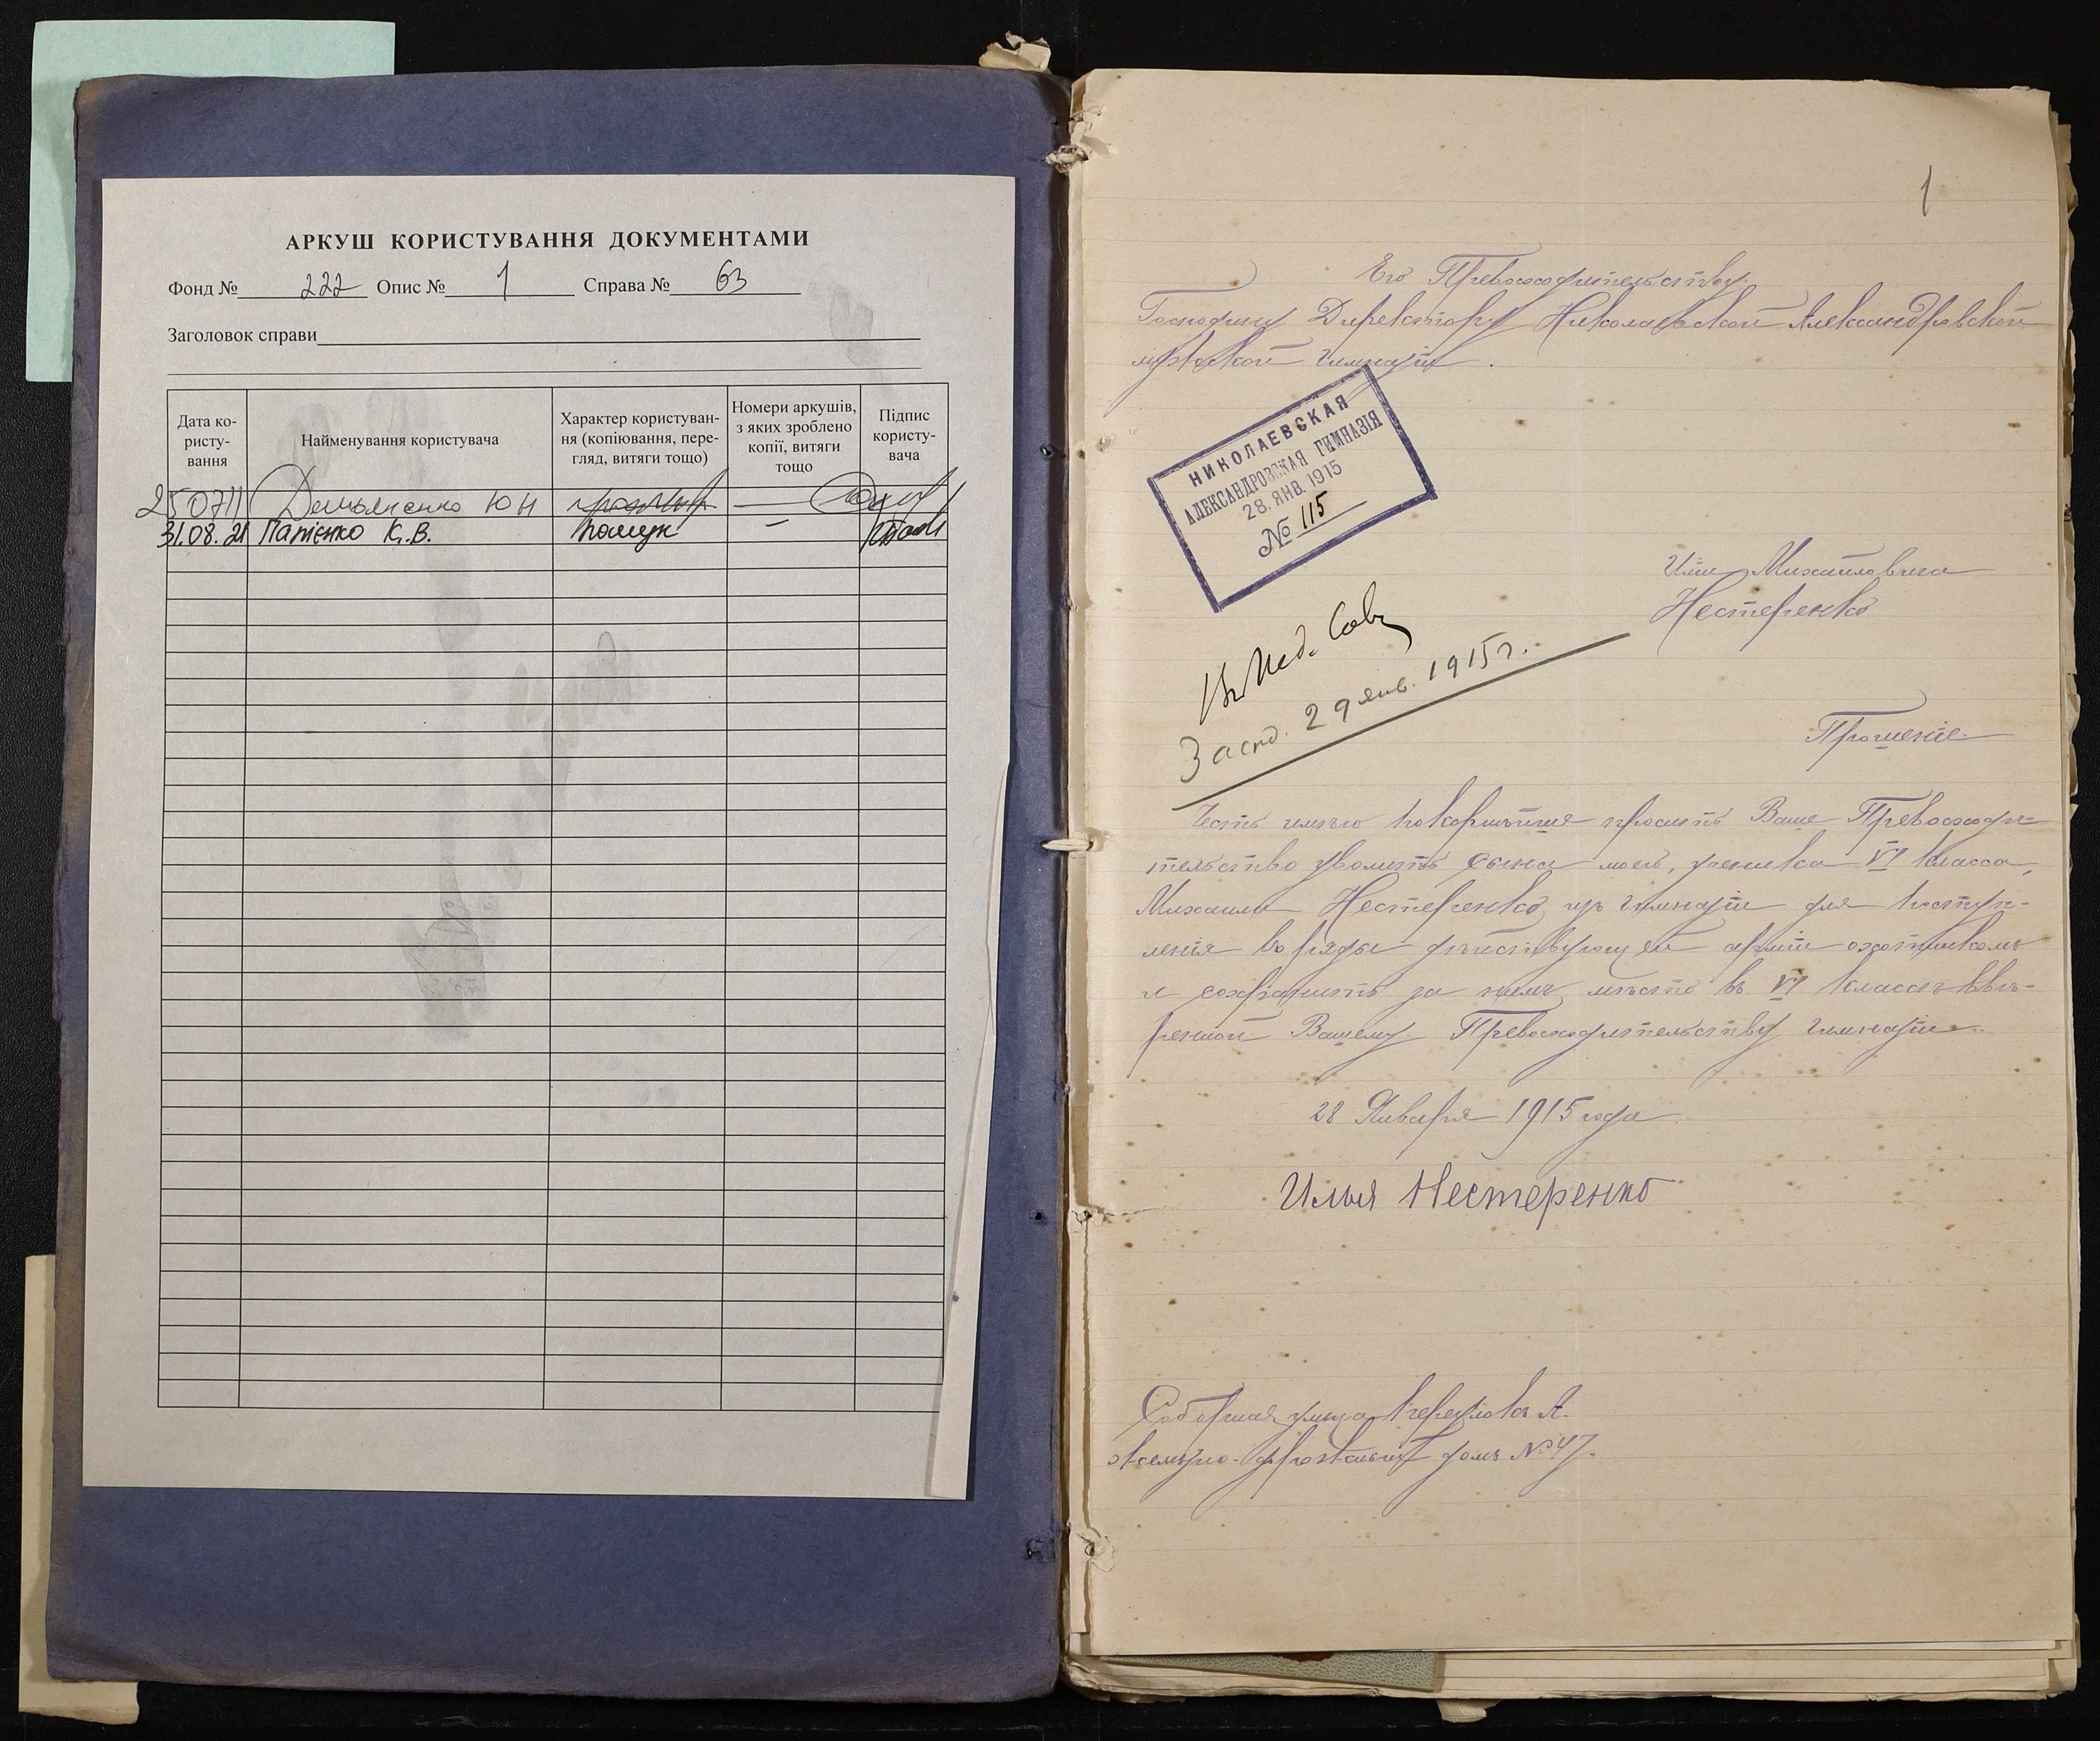 АРКУШ КОРИСТУВАННЯ ДОКУМЕНТАМИ
Фонд № 222 Опис № 1 Справа № 63
Заголовок справи
Дата ко-
ристу-
вання
Найменування користувача
Характер користуван-
ня (копіювання, пере-
гляд, витяги тощо)
Номери аркушів,
з яких зроблено
копії, витяги
тощо
Підпис
користу-
вача
250711 Демьяненко Ю Н —
31.08.21 Папієнко К.В. пошук –
1
Его Превосходительству
Господину Директору Николаевской Александровской
мужской гимназіи.
НИКОЛАЕВСКАЯ
АЛЕКСАНДРОВСКАЯ ГИМНАЗІЯ
28. ЯНВ. 1915
№ 115
Ильи Михайловича
Нестеренко
Въ Пед. Сов.
Засѣд. 29 янв. 1915 г.
Прошеніе
Честь имѣю покорнѣйше просить Ваше Превосходи-
тельство уволить сына моего, ученика VI класса,
Михаила Нестеренко изъ гимназіи для поступ-
ленія въ ряды дѣйствующей арміи охотникомъ
и сохранить за нимъ мѣсто въ VI классѣ ввѣ-
ренной Вашему Превосходительству гимназіи.
28 Января 1915 года
Илья Нестеренко
Соборная улица
домъ № 47.